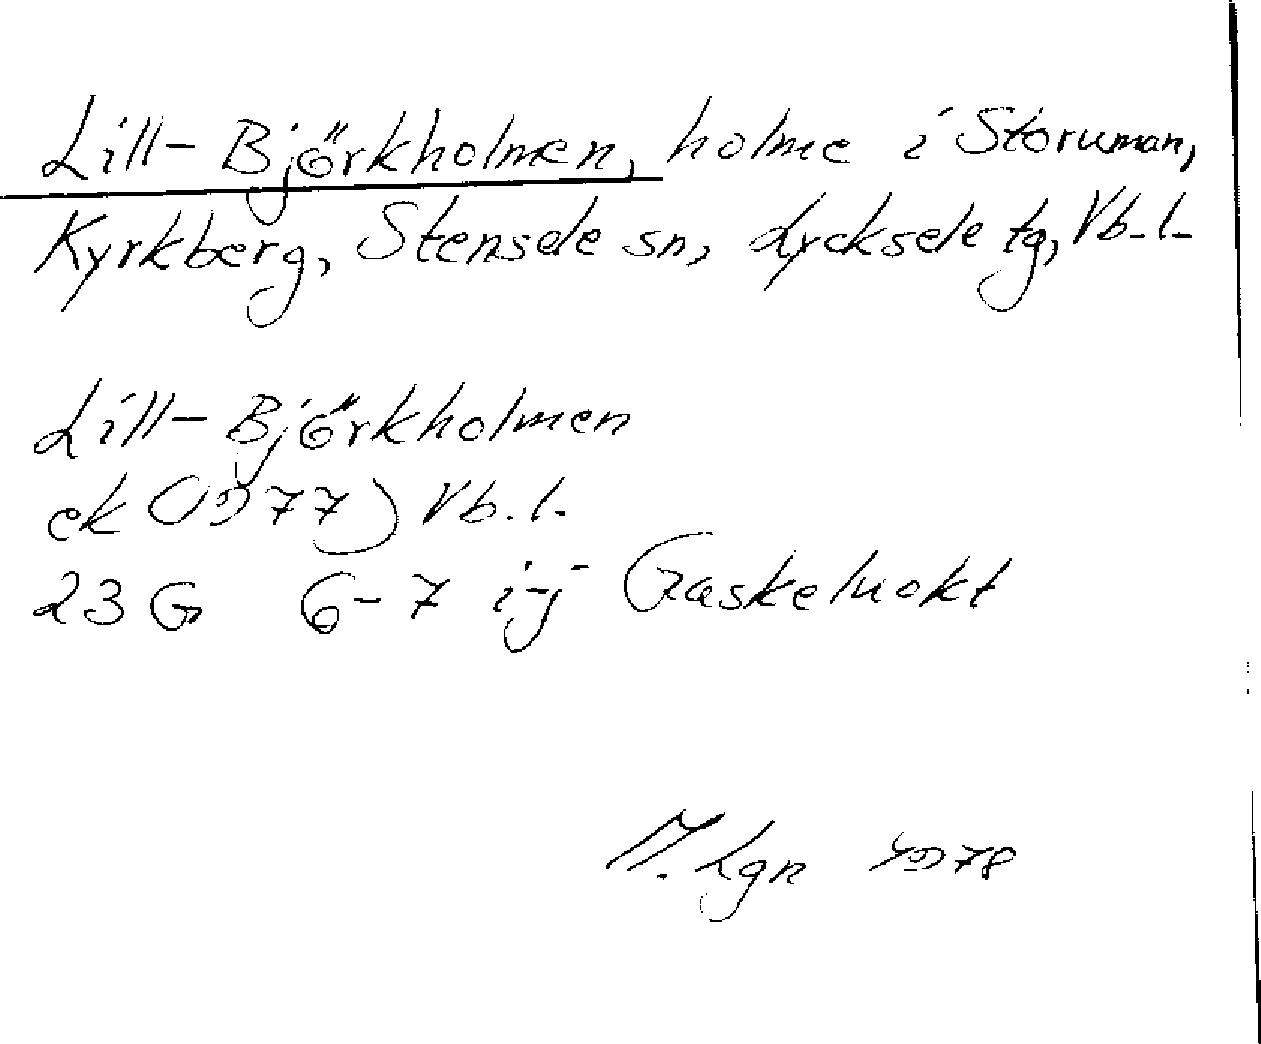 Lill-Björkholmen, holme i Storuman,
Kyrkberg, Stensele sn, Lycksele tg, Vb.l.
Lill-Björkholmen
ek (1977) Vb.l.
23 G 6-7 i-j Gaskeluokt
M. Lgn 1978